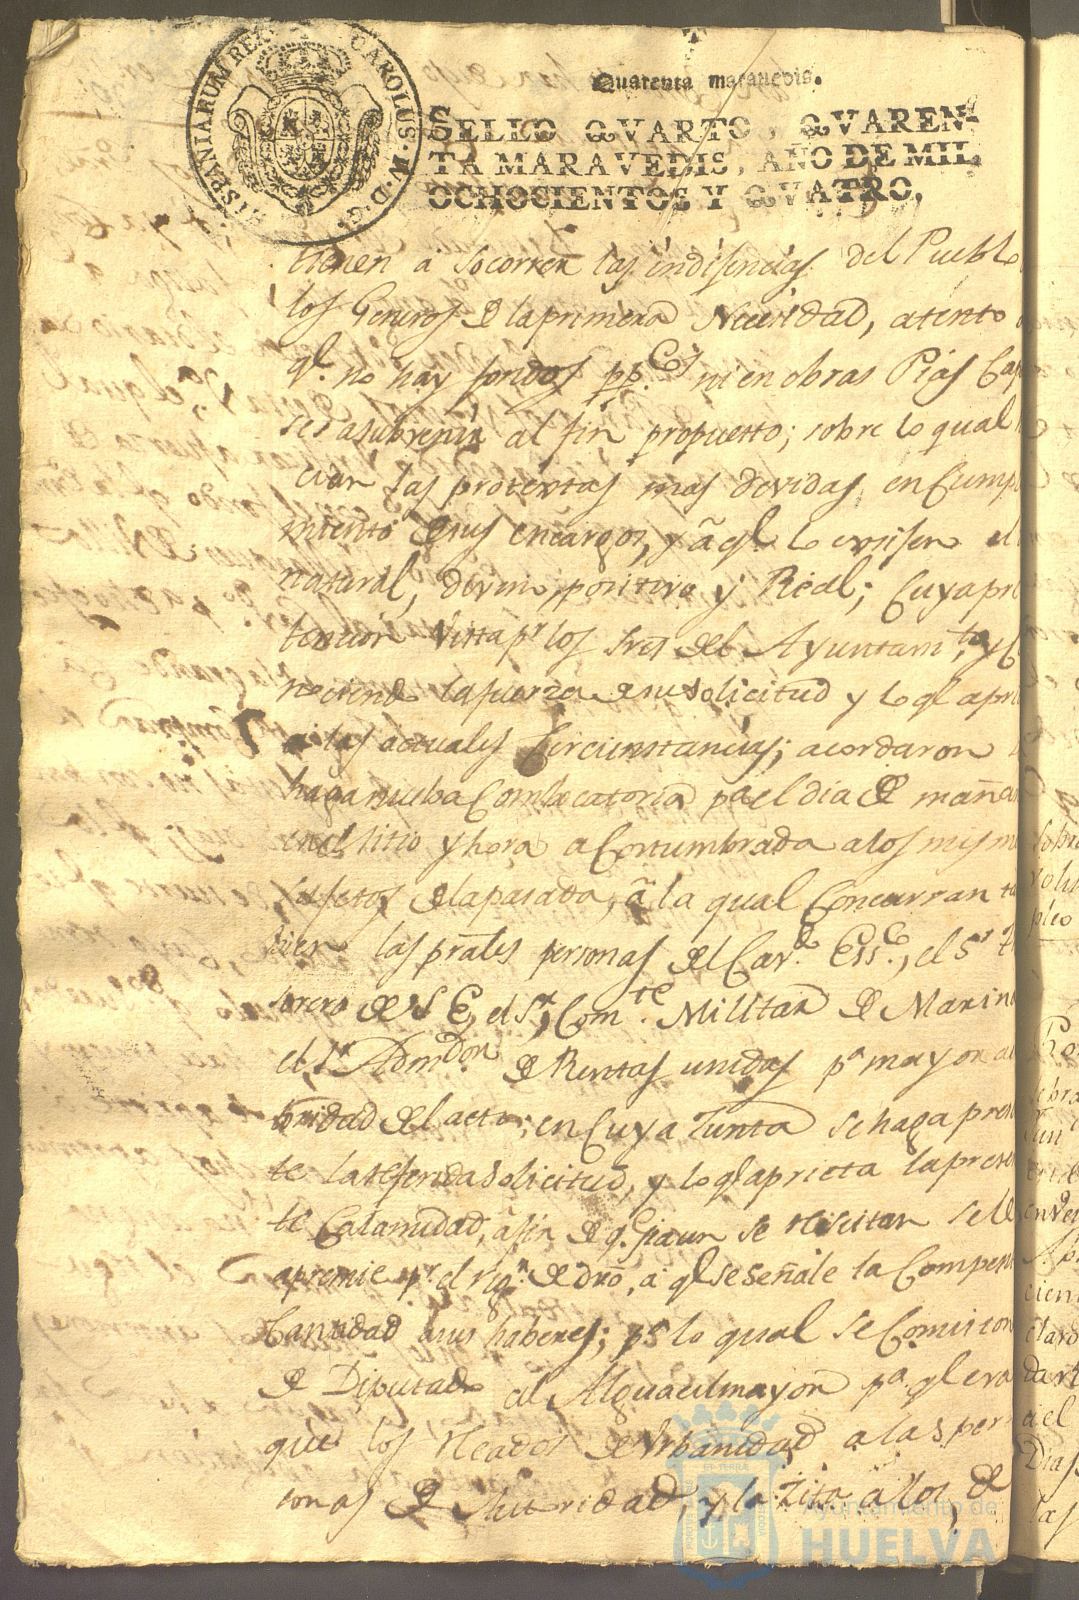 HISPANIARUM REX CAROLUS IV D G
Quarenta maravedis.
SELLO QVARTO, QVAREN-
TA MARAVEDIS, AÑO DE MIL
OCHOCIENTOS Y QVATRO.
tienen á socorrer las indisencias del Pueblo
los Generos de la primera Necesidad, atento
qe. no hay fondos pp.cos ni en obras Pias Cap
ses a subvenir al fin propuesto; sobre lo qual
las protextas mas devidas en Cumpl
miento de sus encargos, y á qe lo exisen el
natural, devin, positivo y Real; Cuya pre
tencion Vista pr los Sres del Ayuntamto, y C
nociendo la fuerza de su solicitud y lo qe apri
las actuales Circunstancias; acordaron
haga nueba Combocatoria pa el dia de maña
en el sitio y hora acostumbrada a los mism
sugetos de la pasada, á la qual Concurran ta
bien las prales personas del Cav.do Ecc.co, el Sr The
sorero de S E, el Sr, Com.te Militar de Marin
el Sr Adm.don de Rentas unidas pa mayor au
toridad del acto; en Cuya Junta se haga presen
te la referida solicitud, y lo qe aprieta la presen
te Calamidad, á fin de qe si aun se resistan se le
apremie pr. el rigr. de dro, a qe se señale la Compen
Cantidad a sus haberes; ps lo qual se Comision
de Diputado al Alguacil mayor pa qe eva
que los Reados de Urbanidad a las per
sonas de Autoridad, y la Zita á los de
Ayuntamiento de
HUELVA